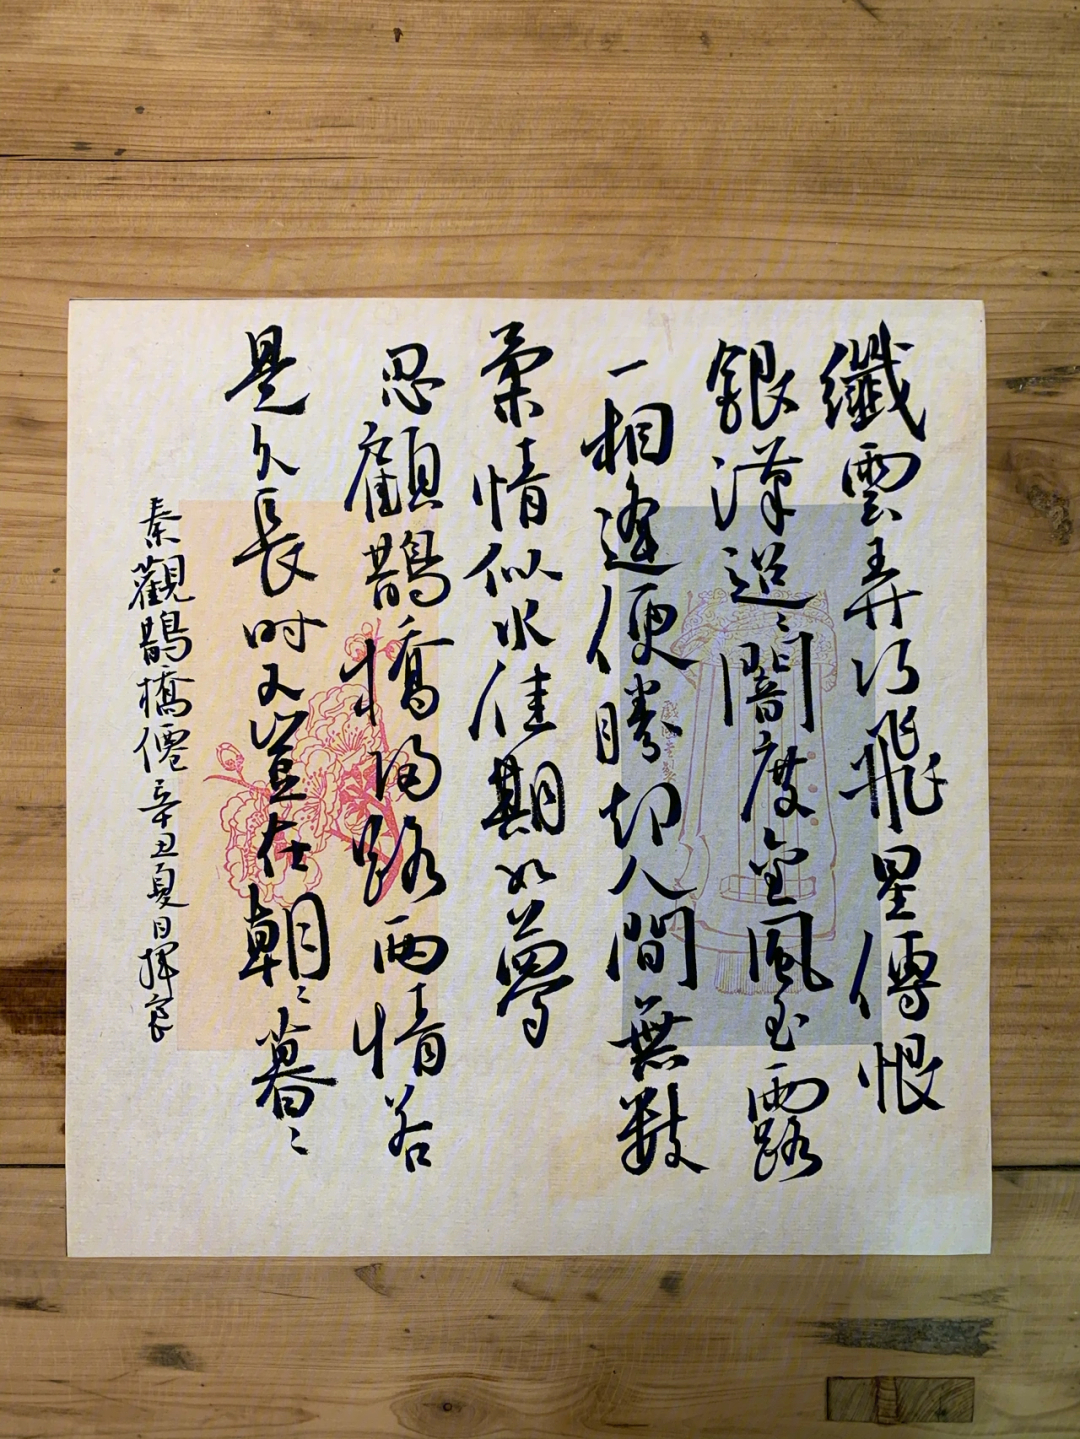 纖雲弄巧飛星傳恨
銀漢迢〻闇度金風玉露
一相逢便勝却人間無數
柔情似水佳期如夢
忍顧鵲橋歸路兩情若
是久長时又豈在朝〻暮〻
秦觀鵲橋僊辛丑夏日